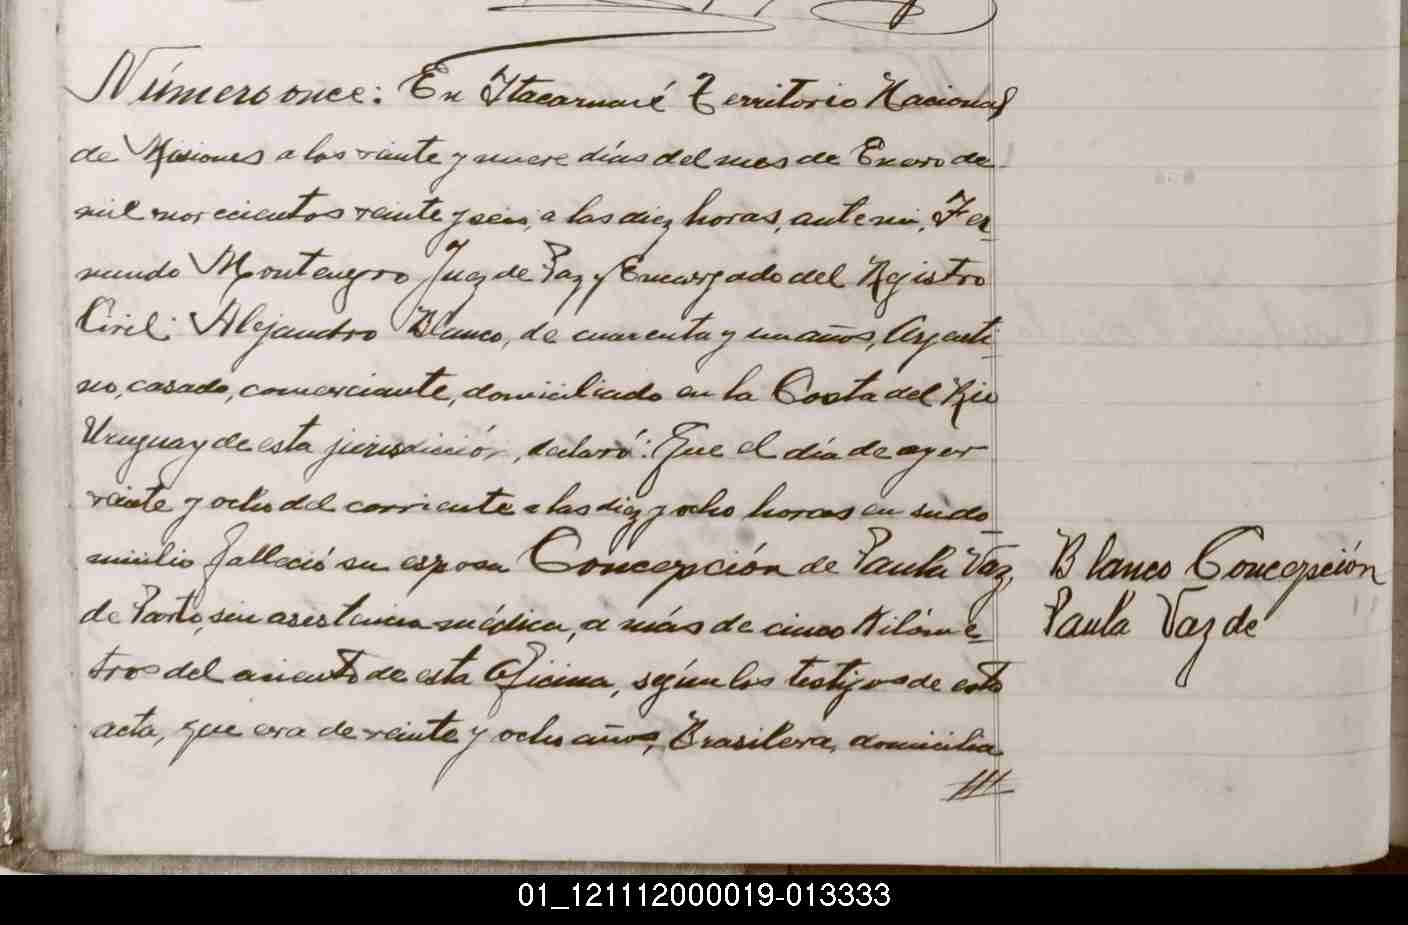 Número once: En Itacaruaré Territorio Nacional
de Misiones a los veinte y nueve días del mes de Enero de
mil novecientos veinte y seis, a las diez horas, ante mi, Fer-
nando Montenegro Juez de Paz y Encargado del Registro
Civil: Alejandro Blanco, de cuarenta y un años, Argenti-
no, casado, comerciante, domiciliado en la Costa del Rio
Uruguay de esta jurisdicción, declaró: Que el día de ayer
veinte y ocho del corriente a las diez y ocho horas en su do-
micilio falleció su esposa Concepción de Paula Vaz,
de Parto, sin asistencia médica, a más de cinco Kilóme-
tros del asiento de esta Oficina, según los testigos de esta
acta, que era de veinte y ocho años, Brasilera, domicilia
///
Blanco Concepción
Paula Vaz de
01_121112000019-013333